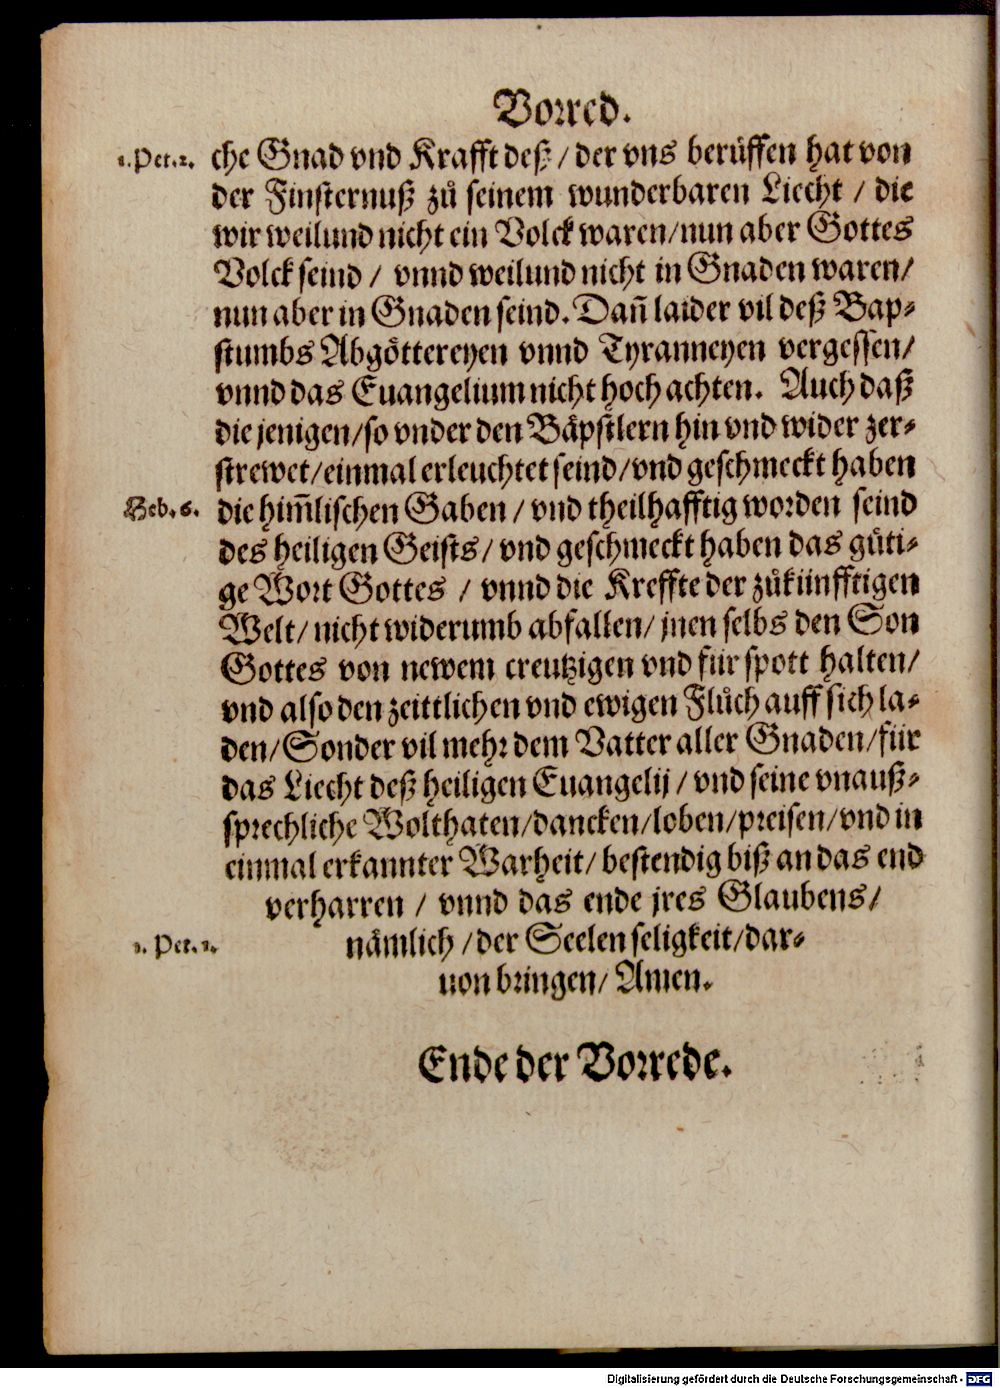 Vorred.
1. Pet. 2. che Gnad vnd Krafft deß / der vns berůffen hat von
der Finsternuß zů seinem wunderbaren Liecht / die
wir weilund nicht ein Volck waren / nun aber Gottes
Volck seind / vnnd weilund nicht in Gnaden waren /
nun aber in Gnaden seind. Dañ laider vil deß Bap-
stumbs Abgöttereyen vnnd Tyranneyen vergessen /
vnnd das Euangelium nicht hoch achten. Auch daß
die jenigen / so vnder den Bäpstlern hin vnd wider zer-
strewet / einmal erleuchtet seind / vnd geschmeckt haben
Heb. 6. die him̃lischen Gaben / vnd theilhafftig worden seind
des heiligen Geists / vnd geschmeckt haben das güti-
ge Wort Gottes / vnnd die Kreffte der zůkünfftigen
Welt / nicht widerumb abfallen / jnen selbs den Son
Gottes von newem creutzigen vnd für spott halten /
vnd also den zeittlichen vnd ewigen Flůch auff sich la-
den / Sonder vil mehr dem Vatter aller Gnaden / für
das Liecht deß heiligen Euangelij / vnd seine vnauß-
sprechliche Wolthaten / dancken / loben / preisen / vnd in
einmal erkannter Warheit / bestendig biß an das end
verharren / vnnd das ende jres Glaubens /
1. Pet. 1. nämlich / der Seelen seligkeit / dar-
uon bringen / Amen.
Ende der Vorrede.
Digitalisierung gefördert durch die Deutsche Forschungsgemeinschaft - DFG